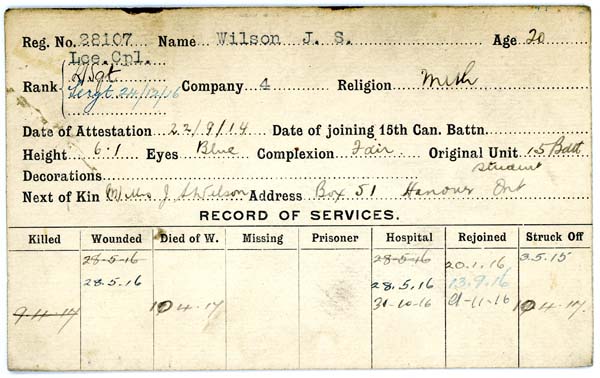 Reg. No. 28107 Name Wilson J. S. Age 20
Lce.Cpl.
Rank L/Sgt Company 4 Religion Meth
Sergt 24/12/16
Date of Attestation 22/9/14 Date of joining 15th Can. Battn.
Height 6.1 Eyes Blue Complexion Fair Original Unit 15 Batt
Decorations student
Next of Kin J Wilson Address Box 51 Hanover Ont
RECORD OF SERVICES.
Killed Wounded Died of W. Missing Prisoner Hospital Rejoined Struck Off
28-5-16 28-5-16 20.1.16 3.5.15
28.5.16 28.5.16 13.9.16
9.4.17 10.4.17 31-10-16 21-11-16 10.4.17